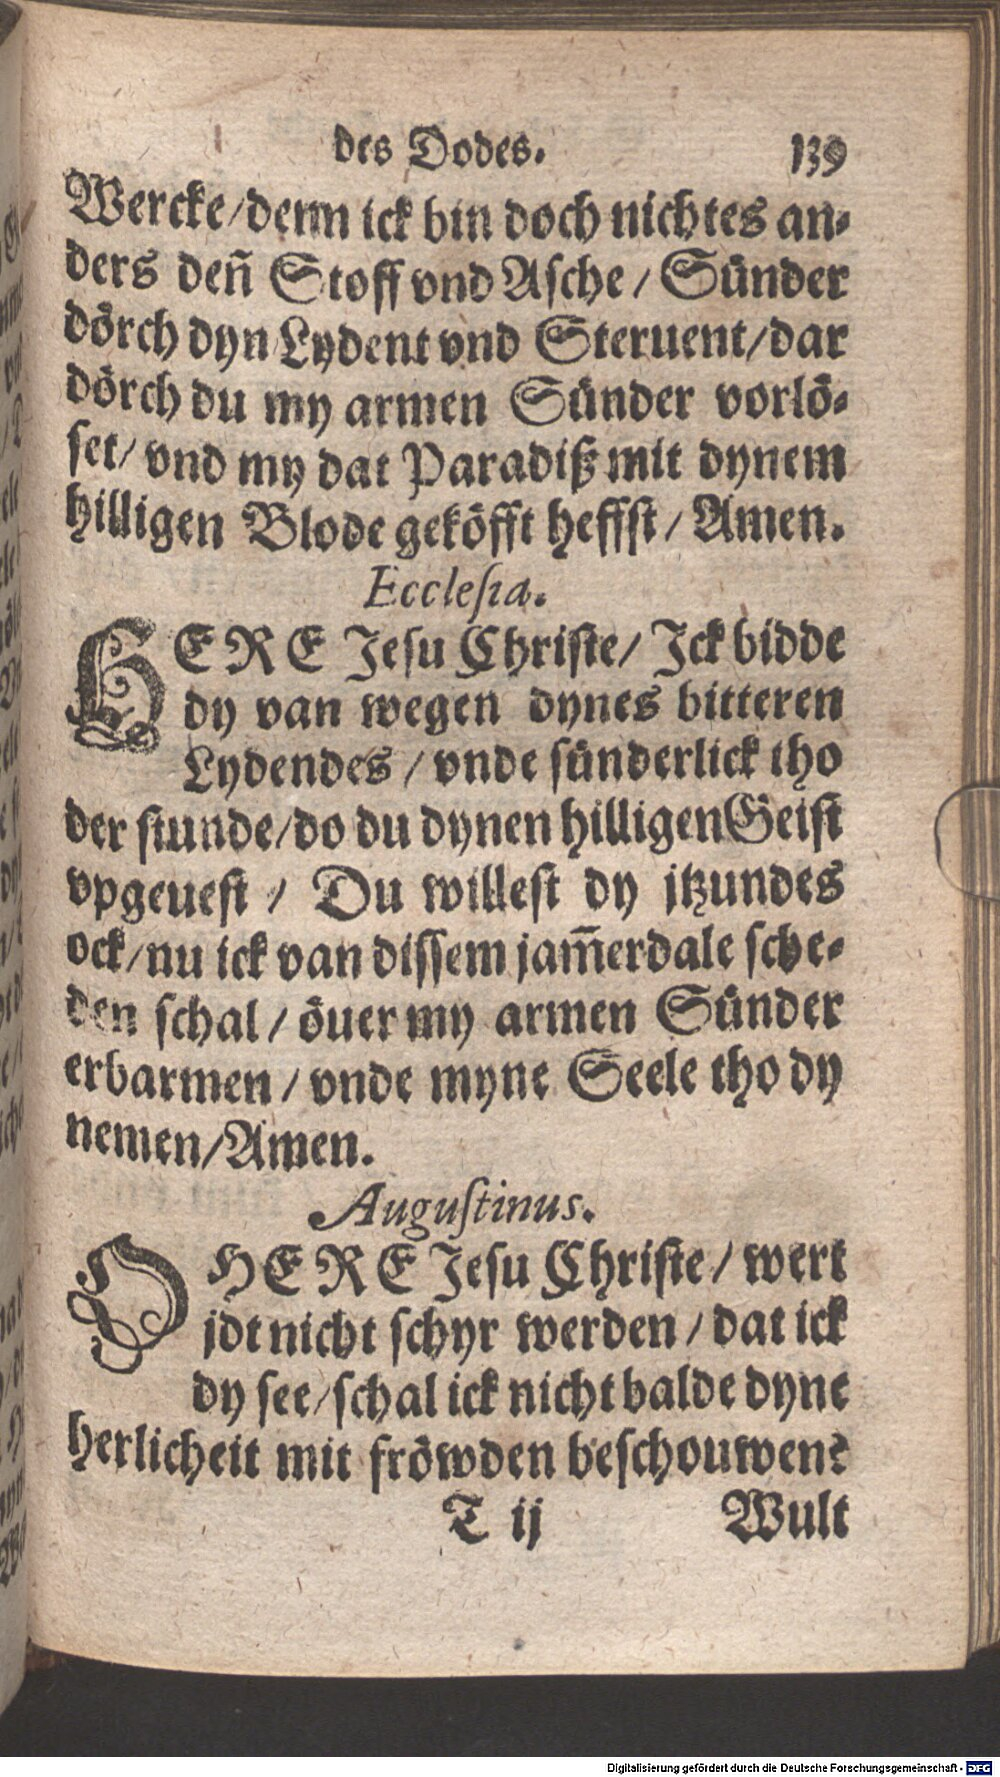 des Dodes. 139
Wercke/denn ick bin doch nichtes an-
ders deñ Stoff vnd Asche / Sünder
dörch dyn Lydent vnd Steruent/dar
dörch du my armen Sünder vorlö-
set/ vnd my dat Paradiß mit dynem
hilligen Blode geköfft heffst / Amen.
Ecclesia.
HERE Jesu Christe/ Jck bidde
dy van wegen dynes bitteren
Lydendes / vnde sünderlick tho
der stunde/do du dynen hilligen Geist
vpgeuest / Du willest dy jtzundes
ock/nu ick van dissem jam̃erdale sche-
den schal / öuer my armen Sünder
erbarmen / vnde myne Seele tho dy
nemen/Amen.
Augustinus.
O HERE Jesu Christe / wert
jdt nicht schyr werden / dat ick
dy see/schal ick nicht balde dyne
herlicheit mit fröwden beschouwen?
T ij Wult
Digitalisierung gefördert durch die Deutsche Forschungsgemeinschaft - DFG